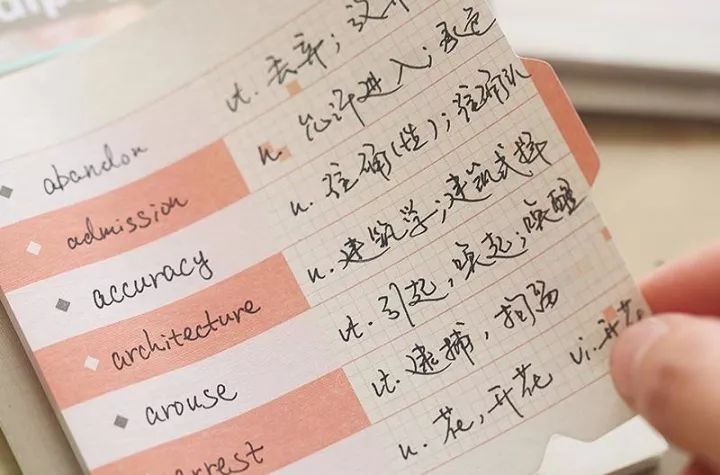 abandon vt. 丢弃;
admission n. 允许进入;
accuracy n. 准确(性);
architecture n. 建筑学;建筑式样
arouse vt. 引起,唤起;唤醒
vt. 逮捕,拘留
n. 花,开花 vi. 开花